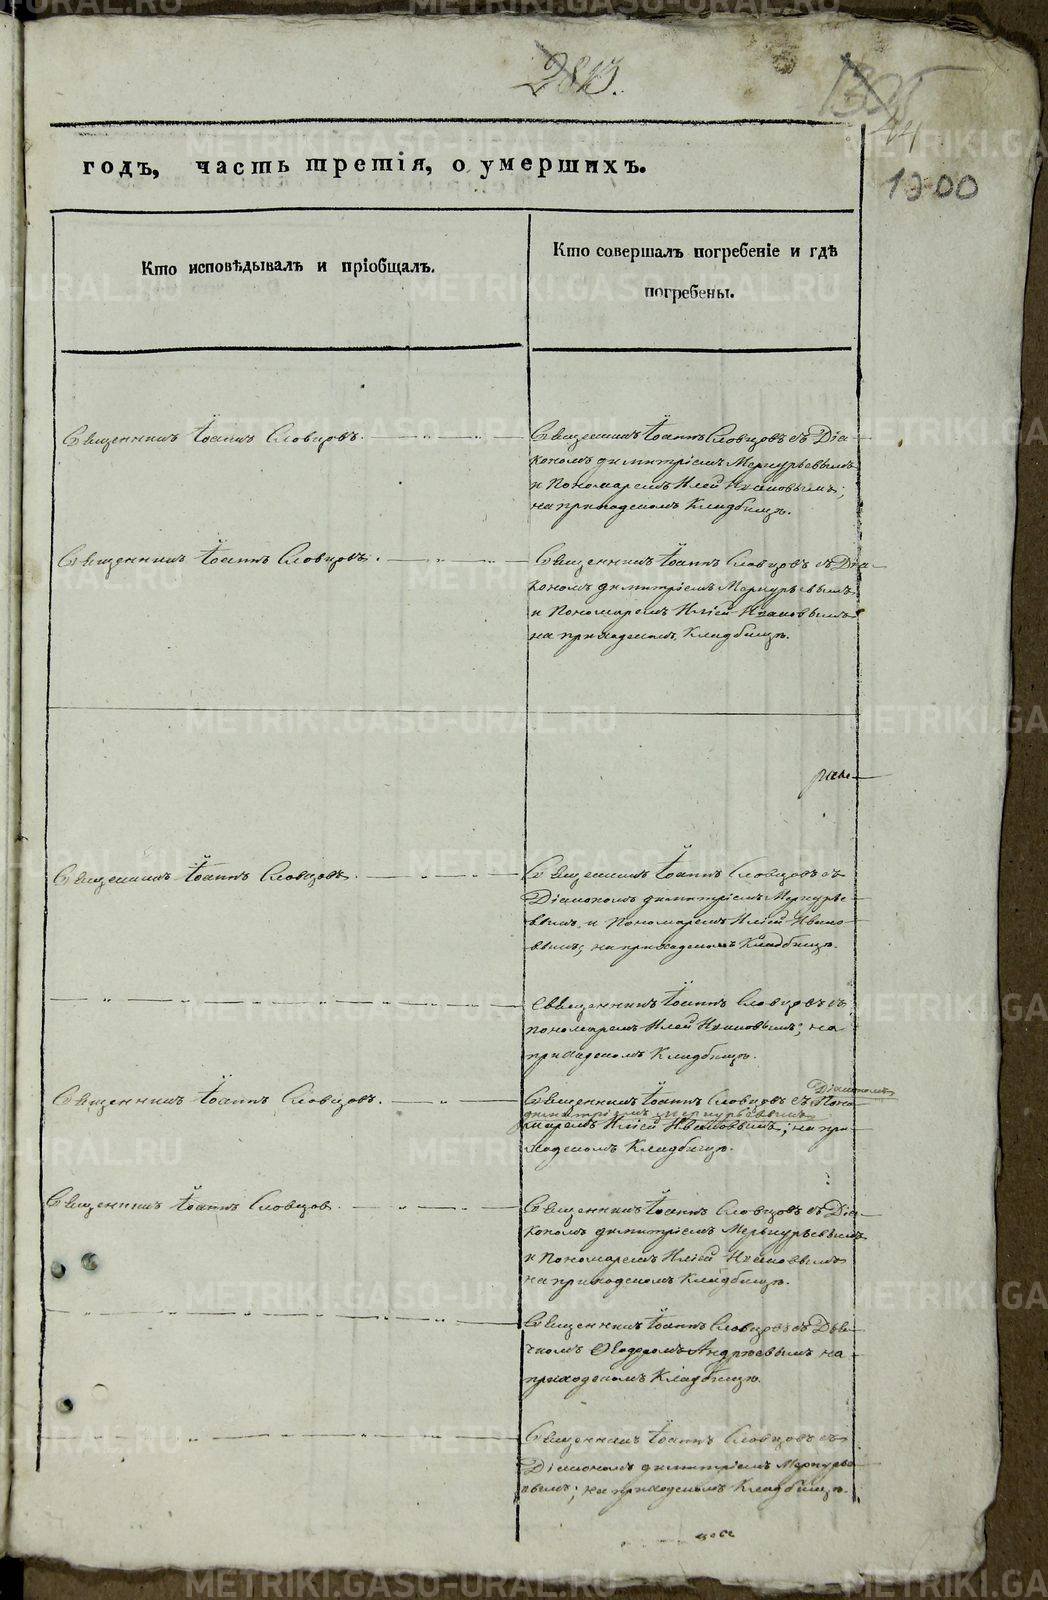 2813.
44
1900
годъ, часть третія, о умершихъ.
Кто исповѣдывалъ и пріобщалъ.
Кто совершалъ погребеніе и гдѣ
погребены.
Священникъ Іоаннъ Словцовъ.
Священникъ Іоаннъ Словцовъ съ Діа-
кономъ Димитріемъ Меркурьевымъ
и Пономаремъ Иліей Ивановымъ;
на приходскомъ Кладбищѣ.
Священникъ Іоаннъ Словцовъ.
Священникъ Іоаннъ Словцовъ съ Діа-
кономъ Димитріемъ Меркурьевымъ
и Пономаремъ Иліей Ивановымъ
на приходскомъ Кладбищѣ.
Священникъ Іоаннъ Словцовъ.
Священникъ Іоаннъ Словцовъ съ
Діакономъ Димитріемъ Меркурье-
вымъ и Пономаремъ Иліей Ивано-
вымъ; на приходскомъ Кладбищѣ.
Священникъ Іоаннъ Словцовъ съ
пономаремъ Иліей Ивановымъ; на
приходскомъ Кладбищѣ.
Священникъ Іоаннъ Словцовъ.
Діакономъ
Священникъ Іоаннъ Словцовъ съ Поно-
Димитріемъ Меркурьевымъ
маремъ Иліей Ивановымъ; на при-
ходскомъ Кладбищѣ.
Священникъ Іоаннъ Словцов.
Священникъ Іоаннъ Словцовъ съ Діа-
кономъ Димитріемъ Меркурьевымъ
и Пономаремъ Иліей Ивановымъ
на приходскомъ Кладбищѣ.
Священникъ Іоаннъ Словцовъ съ Дья-
чкомъ Ѳедоромъ Андреевымъ на
приходскомъ Кладбищѣ.
Священникъ Іоаннъ Словцовъ съ
Діакономъ Димитріемъ Меркурье-
вымъ; на приходскомъ Кладбищѣ.
METRIKI.GASO-URAL.RU